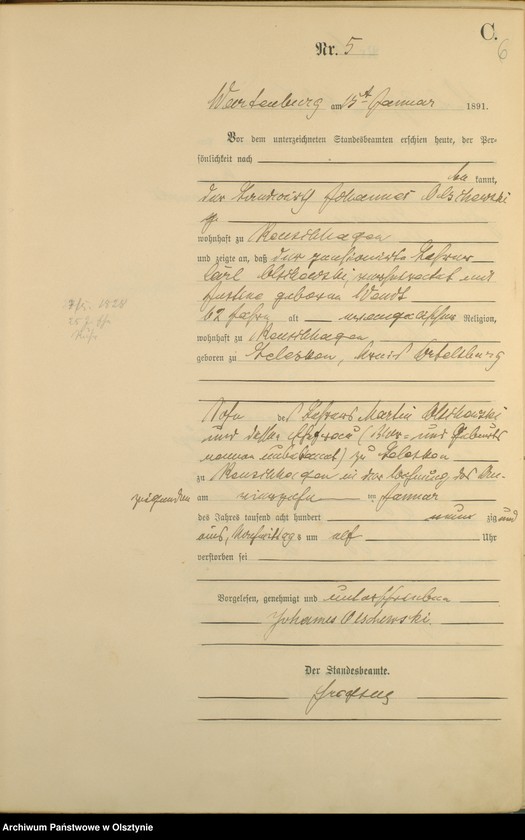 C.
6
Nr. 5
Wartenburg am 15t Januar 1891.
Vor dem unterzeichneten Standesbeamten erschien heute, der Per-
sönlichkeit nach
be kannt,
der Landwirth Johannes Olschewski
wohnhaft zu Reuschhagen
und zeigte an, daß der pensionirte Lehrer
Carl Olschewski, verheirathet mit
Justine geborene Wendt
62 Jahre alt evangelischer Religion,
wohnhaft zu Reuschhagen
geboren zu Seleszen, Kreis Ortelsburg
Sohn des Lehrers Martin Olschewski
und dessen Ehefrau (Vor- und Geburts
namen unbekannt) zu Seleszen
zu Reuschhagen in der Wohnung des An-
zeigenden am vierzehn ten Januar
des Jahres tausend acht hundert neun zig und
eins, Vormittag s um elf Uhr
verstorben sei
Vorgelesen, genehmigt und unterschrieben
Johannes Olschewski.
Der Standesbeamte.
Archiwum Państwowe w Olsztynie